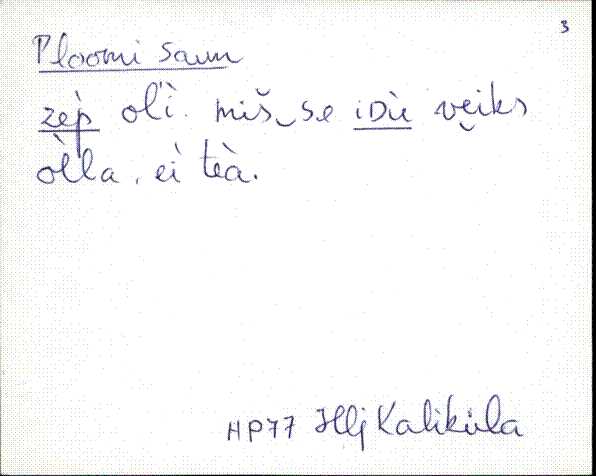 3
Ploomi saun
zèp̀ ol'ì. miš‿se iDù vẹiks
òlla, ei teà.
HP77 Hlj Kaliküla